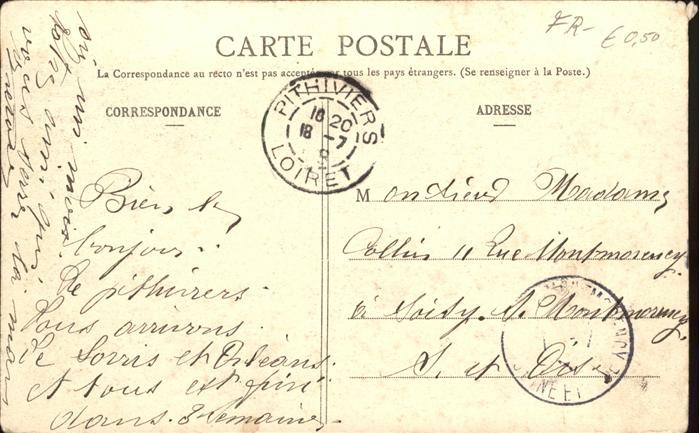 FR- €0,50
CARTE POSTALE
La Correspondance au recto n'est pas acceptée par tous les pays étrangers. (Se renseigner à la Poste.)
CORRESPONDANCE
ADRESSE
PITHIVIERS
18 20
18 -7
LOIRET
Bien le
bonjour
De pithiviers
Nous arrivons
de Sorris et Orléans
et tous est fini
dans 8 semaine
vous serre la main
Monsieur Madame
Collin 11 Rue Montmorency
à Soisy. s. Montmorency
S. et Oise
MONTMORENCY
SEINE ET